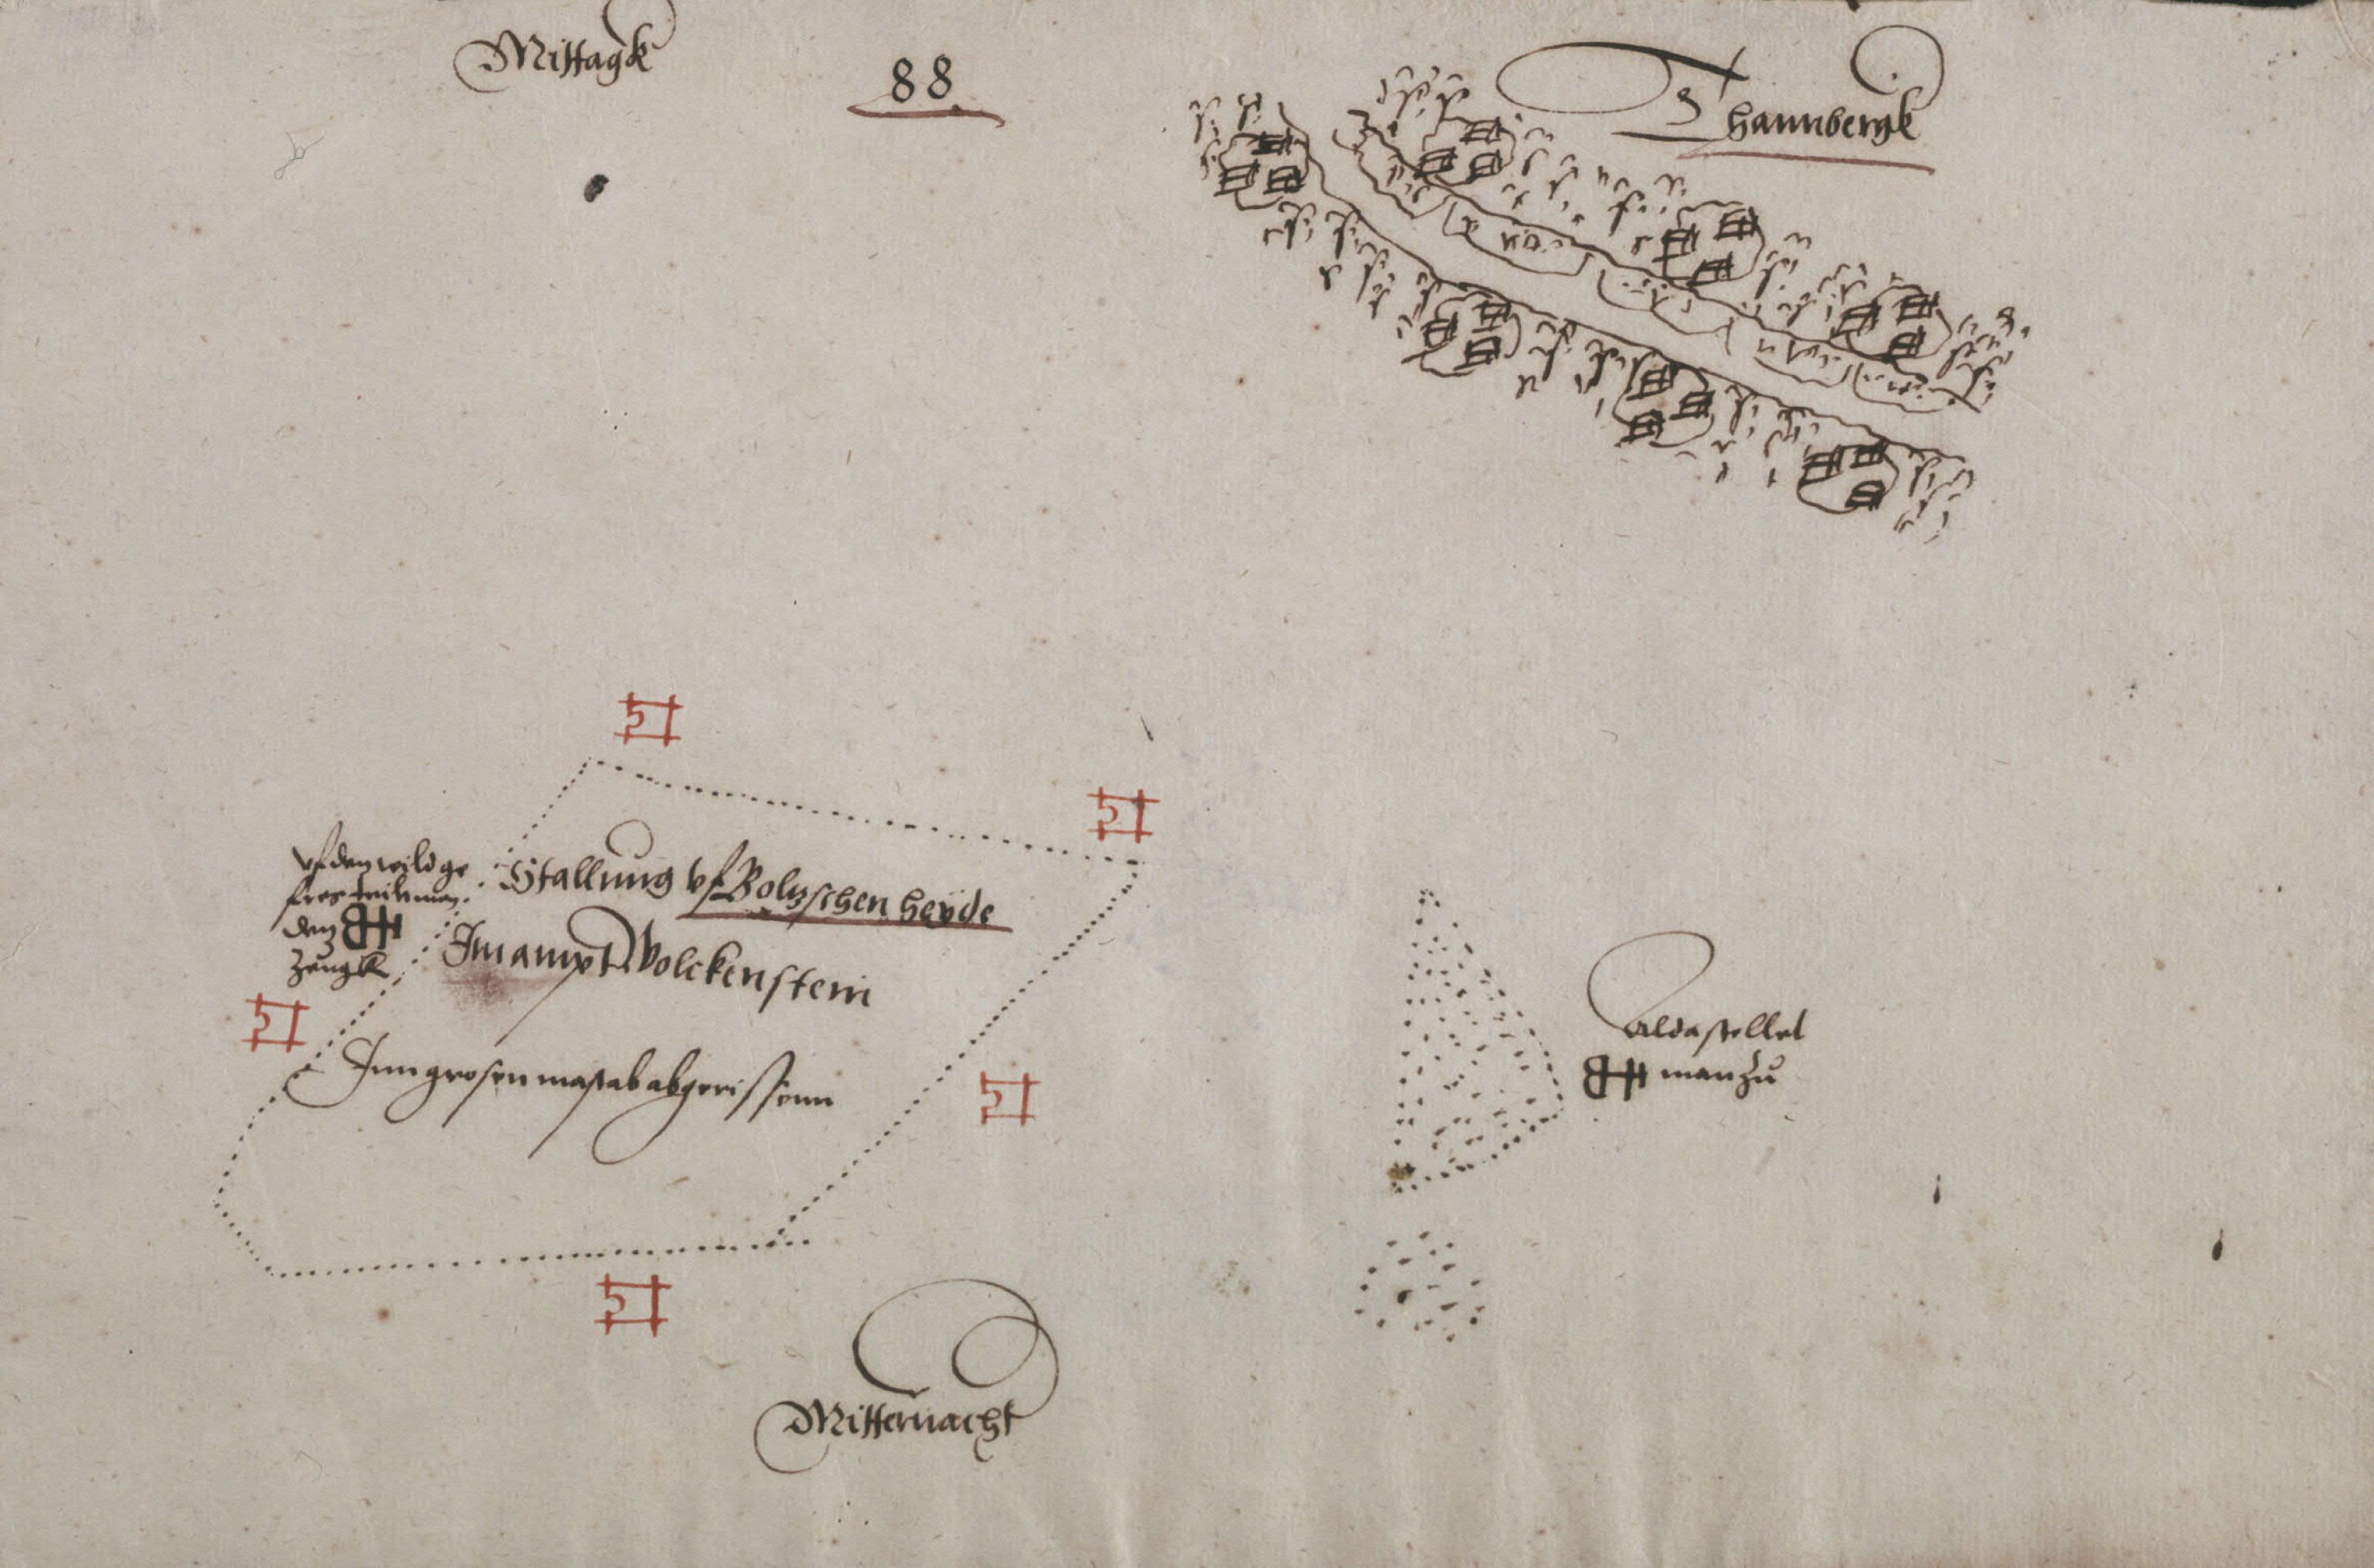 Mittagk
88
Thannbergk
Stallung vf Bolzschen heyde
Im ampt Wolckenstein
Inn grosen masstab abgerissenn
vf den wild ge
den
Zeugk
Alda stellet
man zu
Mitternacht